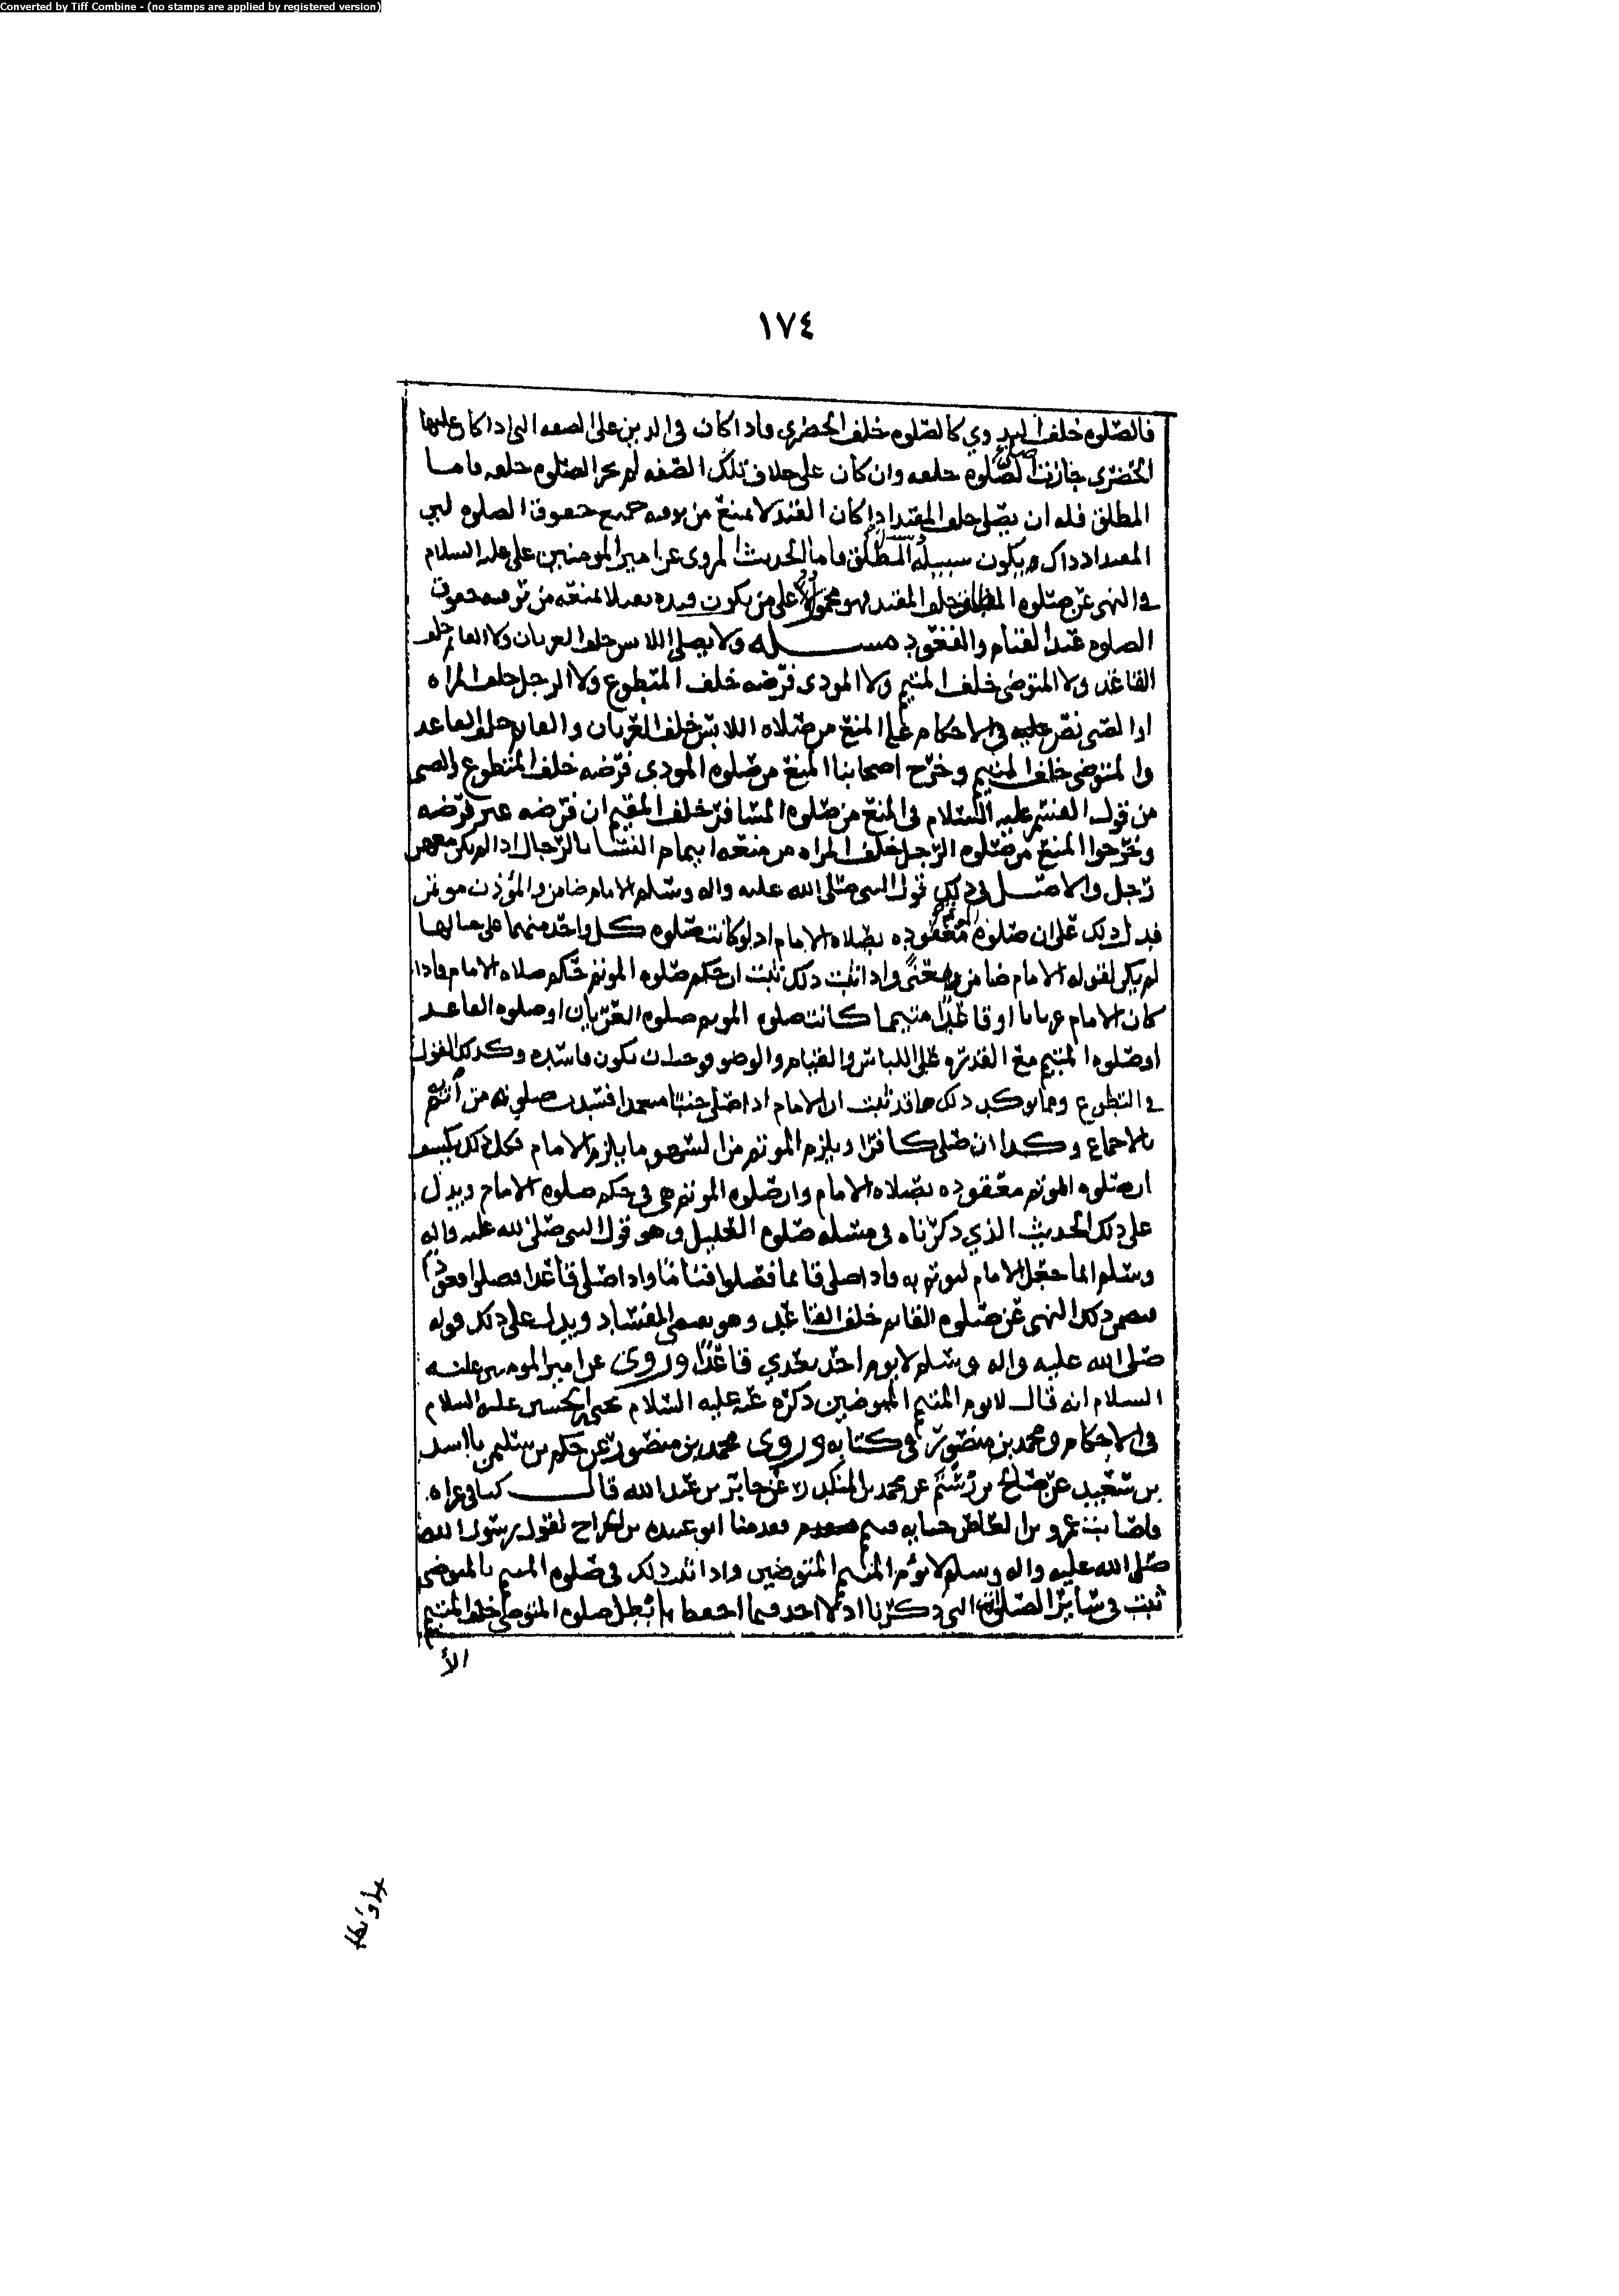 Converted by Tiff Combine - (no stamps are applied by registered version)
١٧٤
فالصلوه خلف البدوي كالصلوه خلف الحضري فاذا كان في الدين على الصفه التي اذا كان عليها
الحضري جازت الصلوه خلفه وان كان على خلاف تلك الصفه لم يجز الصلوه خلفه فاما
المطلق فله ان يصلي خلف المقيد اذا كان القيد لا يمنع من توفيه جميع حقوق الصلوه لان
المقيد اذ ذاك يكون سبيله المطلق فاما الحديث المروي عن امير المومنين علي عليه السلام
في النهي عن صلوه المطلق خلف المقيد فهو محمول على من يكون قيده ثقيلا يمنعه من توفيه حقوق
الصلوه عند القيام والقعود مسله ولا يصلي اللابس خلف العريان ولا القايم خلف
القاعد ولا المتوضي خلف المتيمم ولا المودي فرضه خلف المتطوع ولا الرجل خلف المراه
نص في الاحكام على المنع من صلاه اللابس خلف العريان والقايم خلف القاعد
والمتوضي خلف المتيمم وخرج اصحابنا المنع من صلوه المودي فرضه خلف المتطوع والصبي
من قول القسم عليه السلام في المنع من صلوه المسافر خلف المقيم ان فرضه غير فرضه
وخرجوا المنع من صلوه الرجل خلف المراه من منعه ايتمام النسا بالرجال اذا لم يكن معهن
رجل والاصل في ذلك قول النبي صلى الله عليه واله وسلم الامام ضامن والمؤذن موتمن
فدل ذلك على ان صلوه المؤتم معقوده بصلاه الامام اذ لو كانت صلوه كل واحد منهما على حيالها
لم يكن لقوله الامام ضامن معنى واذا ثبت ذلك ثبت ان حكم صلوه الموتم حكم صلاه الامام فاذا
كان الامام عريانا او قاعدا او متيمما كانت صلوه الموتم صلوه العريان او صلوه القاعد
او صلوه المتيمم مع القدره على اللباس والقيام والوضو فوجب ان تكون فاسده وكذلك القول
في التطوع ومما يوكد ذلك ما قد ثبت ان الامام اذا صلى جنبا متعمدا فسدت صلوته من أتم به
بالاجماع وكذا ان صلى كافرا ويلزم الموتم من السهو ما يلزم الامام فكل ذلك يكشف
ان صلوه الموتم معقوده بصلاه الامام وان صلوه الموتم هي في حكم صلوه الامام ويدل
على ذلك الحديث الذي ذكرناه في مسله صلوه العليل وهو قول النبي صلى الله عليه واله
وسلم انما جعل الامام ليوتم به فاذا صلى قائما فصلوا قياما واذا صلى قاعدا فصلوا قعودا
فتضمن ذلك النهي عن صلوه القايم خلف القاعد وهو يقتضي الفساد ويدل على ذلك قوله
صلى الله عليه واله وسلم لا يوم احد بعدي قاعدا وروى عن امير المومنين عليه
السلام انه قال لا يوم المتيمم المتوضين ذكره عنه عليه السلام يحيى بن الحسين عليه السلام
في الاحكام ومحمد بن منصور في كتابه وروى محمد بن منصور عن حكم بن سليمن
بن سعيد عن صالح بن رستم عن محمد بن المنكدر عن جابر بن عبدالله قال كنا في غزاه
فاصابت عمرو بن العاص جنابه فتيمم فقدمنا ابو عبيده بن الجراح لقول رسول الله
صلى الله عليه واله وسلم لا يؤم المتيمم المتوضين واذا ثبت ذلك في صلوه المتيمم بالمتوضي
ثبت في سائر الصلوات التي ذكرنا اذ لا احد فيما احفظ ابطل صلوه المتوضي خلف المتيمم
الأ